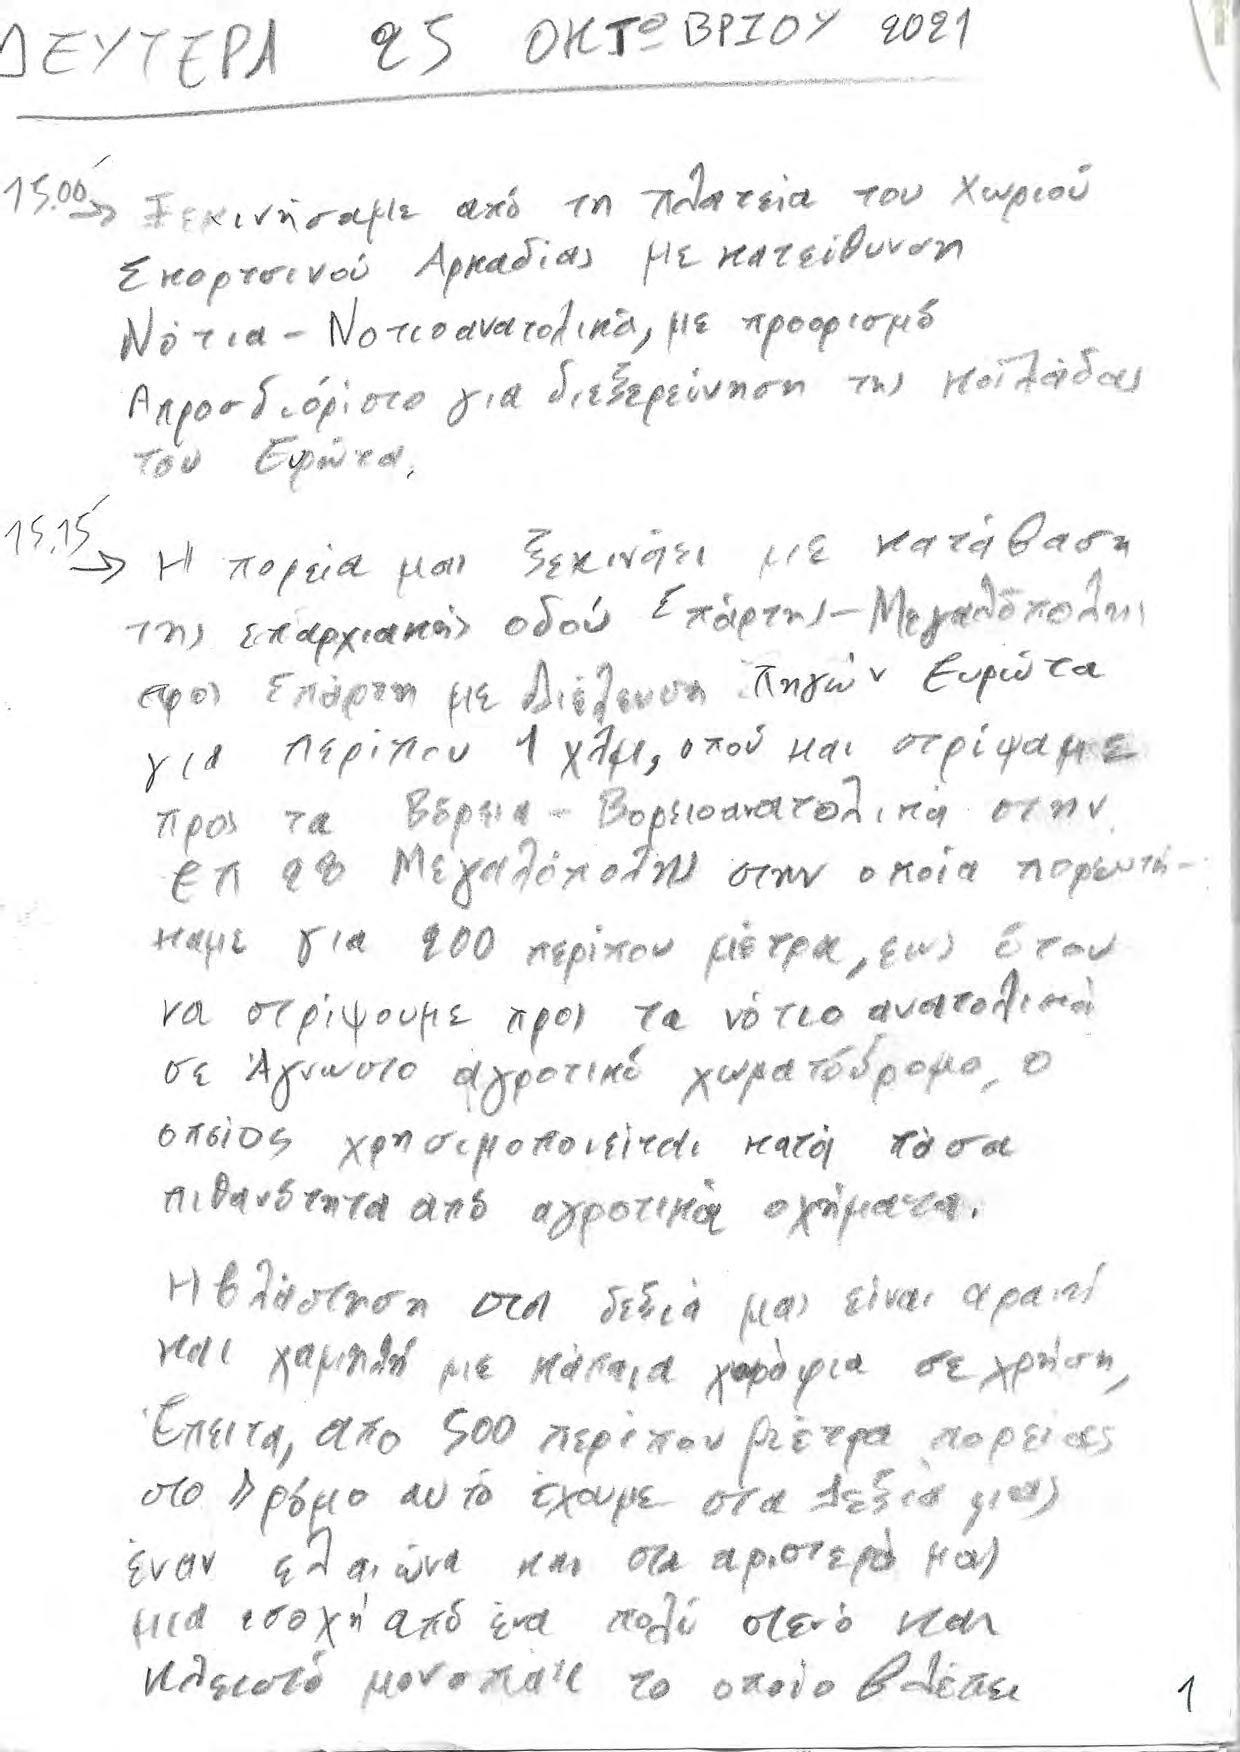 ΔΕΥΤΕΡΑ 25 ΟΚΤΩΒΡΙΟΥ 2021
15.00΄ → Ξεκινήσαμε από τη πλατεία του χωριού
Σκορτσινού Αρκαδίας με κατεύθυνση
Νότια - Νοτιοανατολικά, με προορισμό
Απροσδιόριστο για διεξερεύνηση της κοιλάδας
του Ευρώτα.
15.15΄ → Η πορεία μας ξεκινάει με κατάβαση
της επαρχιακής οδού Σπάρτης - Μεγαλόπολης
προς Σπάρτη με Διέλευση Πηγών Ευρώτα
για περίπου 1 χλμ, οπού και στρίψαμε
προς τα Βόρεια - Βορειοανατολικά στην
ΕΠ 28 Μεγαλόπολης στην οποία πορευτή-
καμε για 200 περίπου μέτρα, εως ότου
να στρίψουμε προς τα νότιο ανατολικά
σε Άγνωστο αγροτικό χωματόδρομο, ο
οποίος χρησιμοποιείται κατά πάσα
πιθανότητα από αγροτικά οχήματα.
Η βλάστηση στα δεξιά μας είναι αραιή
και χαμηλή με κάποια χωράφια σε χρήση,
Έπειτα, απο 500 περίπου μέτρα πορείας
στο Δρόμο αυτό έχουμε στα Δεξιά μας
έναν ελαιώνα και στα αριστερά μας
μια εσοχή από ένα πολύ στενό και
κλειστό μονοπάτι το οποίο βλέπει
1